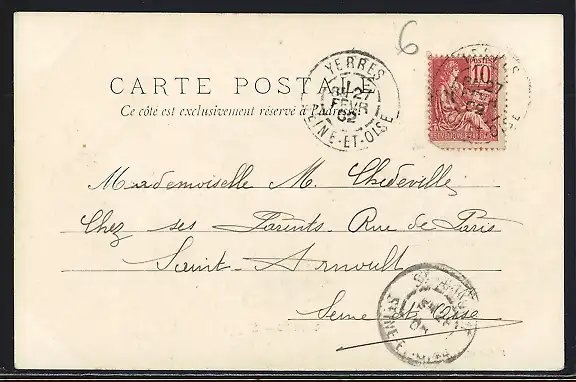 6
YERRES
27
FEVR
02
SEINE-ET-OISE
POSTES
10
CARTE POSTALE
Ce côté est exclusivement réservé à l'adresse
Mademoiselle M. Chedeville
Chez ses Parents. Rue de Paris
Saint-Arnoult
Seine et Oise